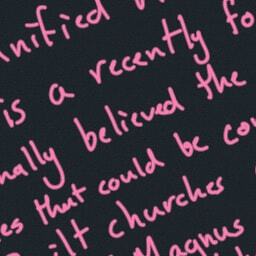 unified
is a recently fo
nally believed the
es that could be co
uilt churches
Magnus